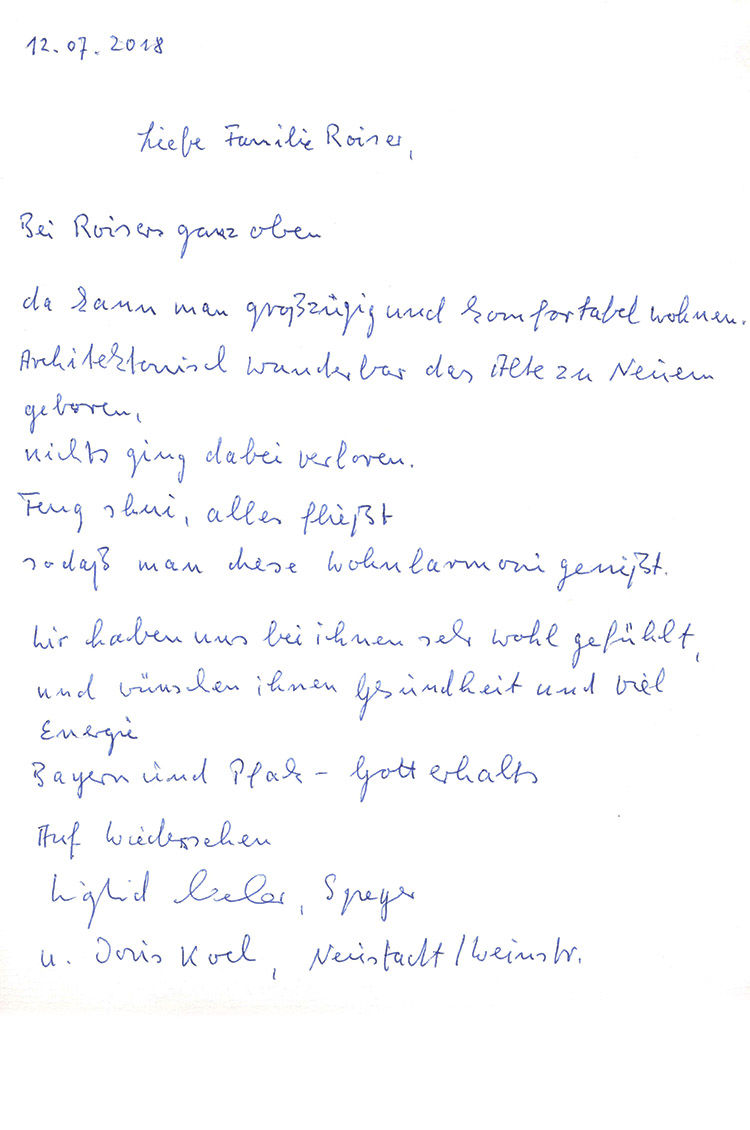 12.07.2018
Liebe Familie Roiser,
Bei Roisers ganz oben
da kann man großzügig und komfortabel wohnen.
Architektonisch wunderbar das Alte zu Neuem
geboren,
nichts ging dabei verloren.
Feng shui, alles fließt
sodaß man diese Wohnharmoni genißt.
Wir haben uns bei ihnen sehr wohl gefühlt,
und wünschen ihnen Gesundheit und viel
Energie
Bayern und Pfalz - Gott erhalts
Auf Wiedersehen
, Speyer
u. Doris , Neustadt/Weinstr.